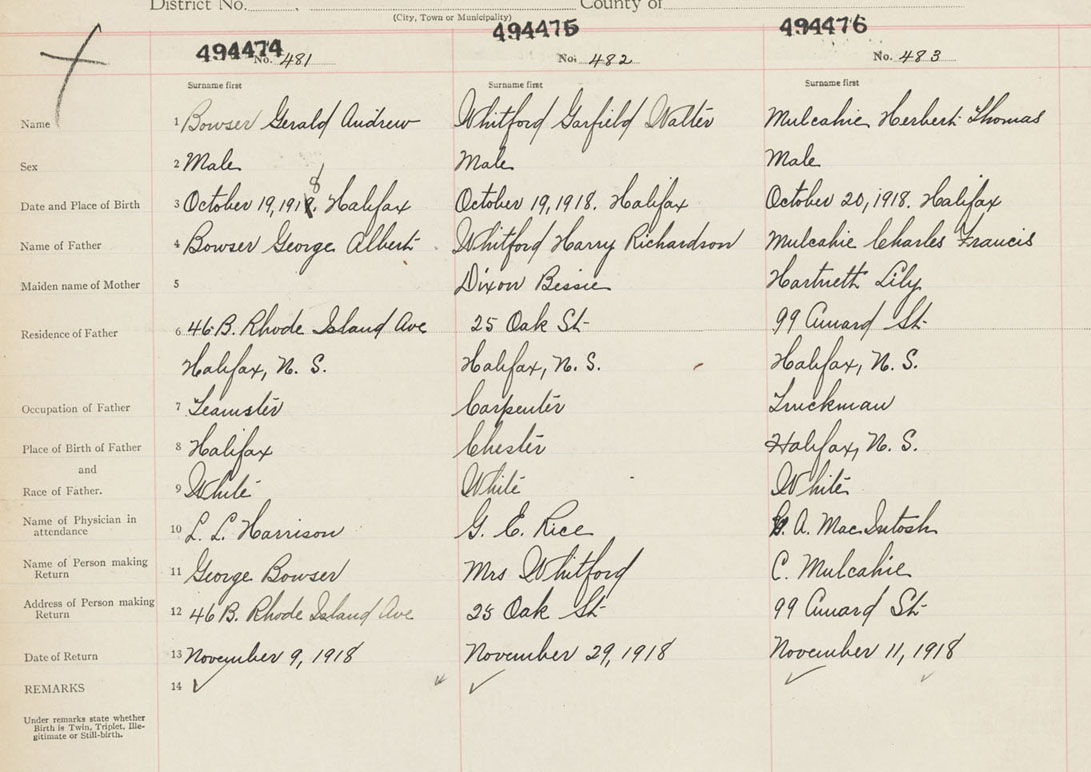 District No. County of
(City, Town or Municipality)
494474 494475 494476
No. 481 No. 482 No. 483
Surname first Surname first Surname first
Name 1 Bowser Gerald Andrew Whitford Garfield Walter Mulcahie Herbert Thomas
Sex 2 Male Male Male
8
Date and Place of Birth 3 October 19, 1918. Halifax October 19, 1918. Halifax October 20, 1918. Halifax
Name of Father 4 Bowser George Albert Whitford Harry Richardson Mulcahie Charles Francis
Maiden name of Mother 5 Dixon Bessie Hartnett Lily
Residence of Father 6 46 B. Rhode Island Ave 25 Oak St 99 Cunard St
Halifax, N. S. Halifax, N. S. Halifax, N. S.
Occupation of Father 7 Teamster Carpenter Truckman
Place of Birth of Father 8 Halifax Chester Halifax, N. S.
and
Race of Father. 9 White White White
Name of Physician in attendance 10 L. L. Harrison G. E. Rice G. A. MacIntosh
Name of Person making Return 11 George Bowser Mrs Whitford C. Mulcahie
Address of Person making Return 12 46 B. Rhode Island Ave 25 Oak St 99 Cunard St
Date of Return 13 November 9, 1918 November 29, 1918 November 11, 1918
REMARKS 14
Under remarks state whether
Birth is Twin, Triplet, Ille-
gitimate or Still-birth.